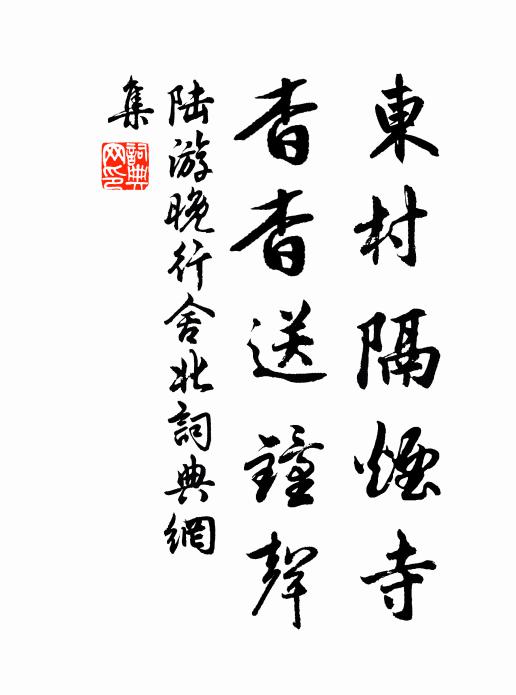 東村隔煙寺
杳杳送鐘聲
陸游晚行舍北詞典網
集
詞典
网印